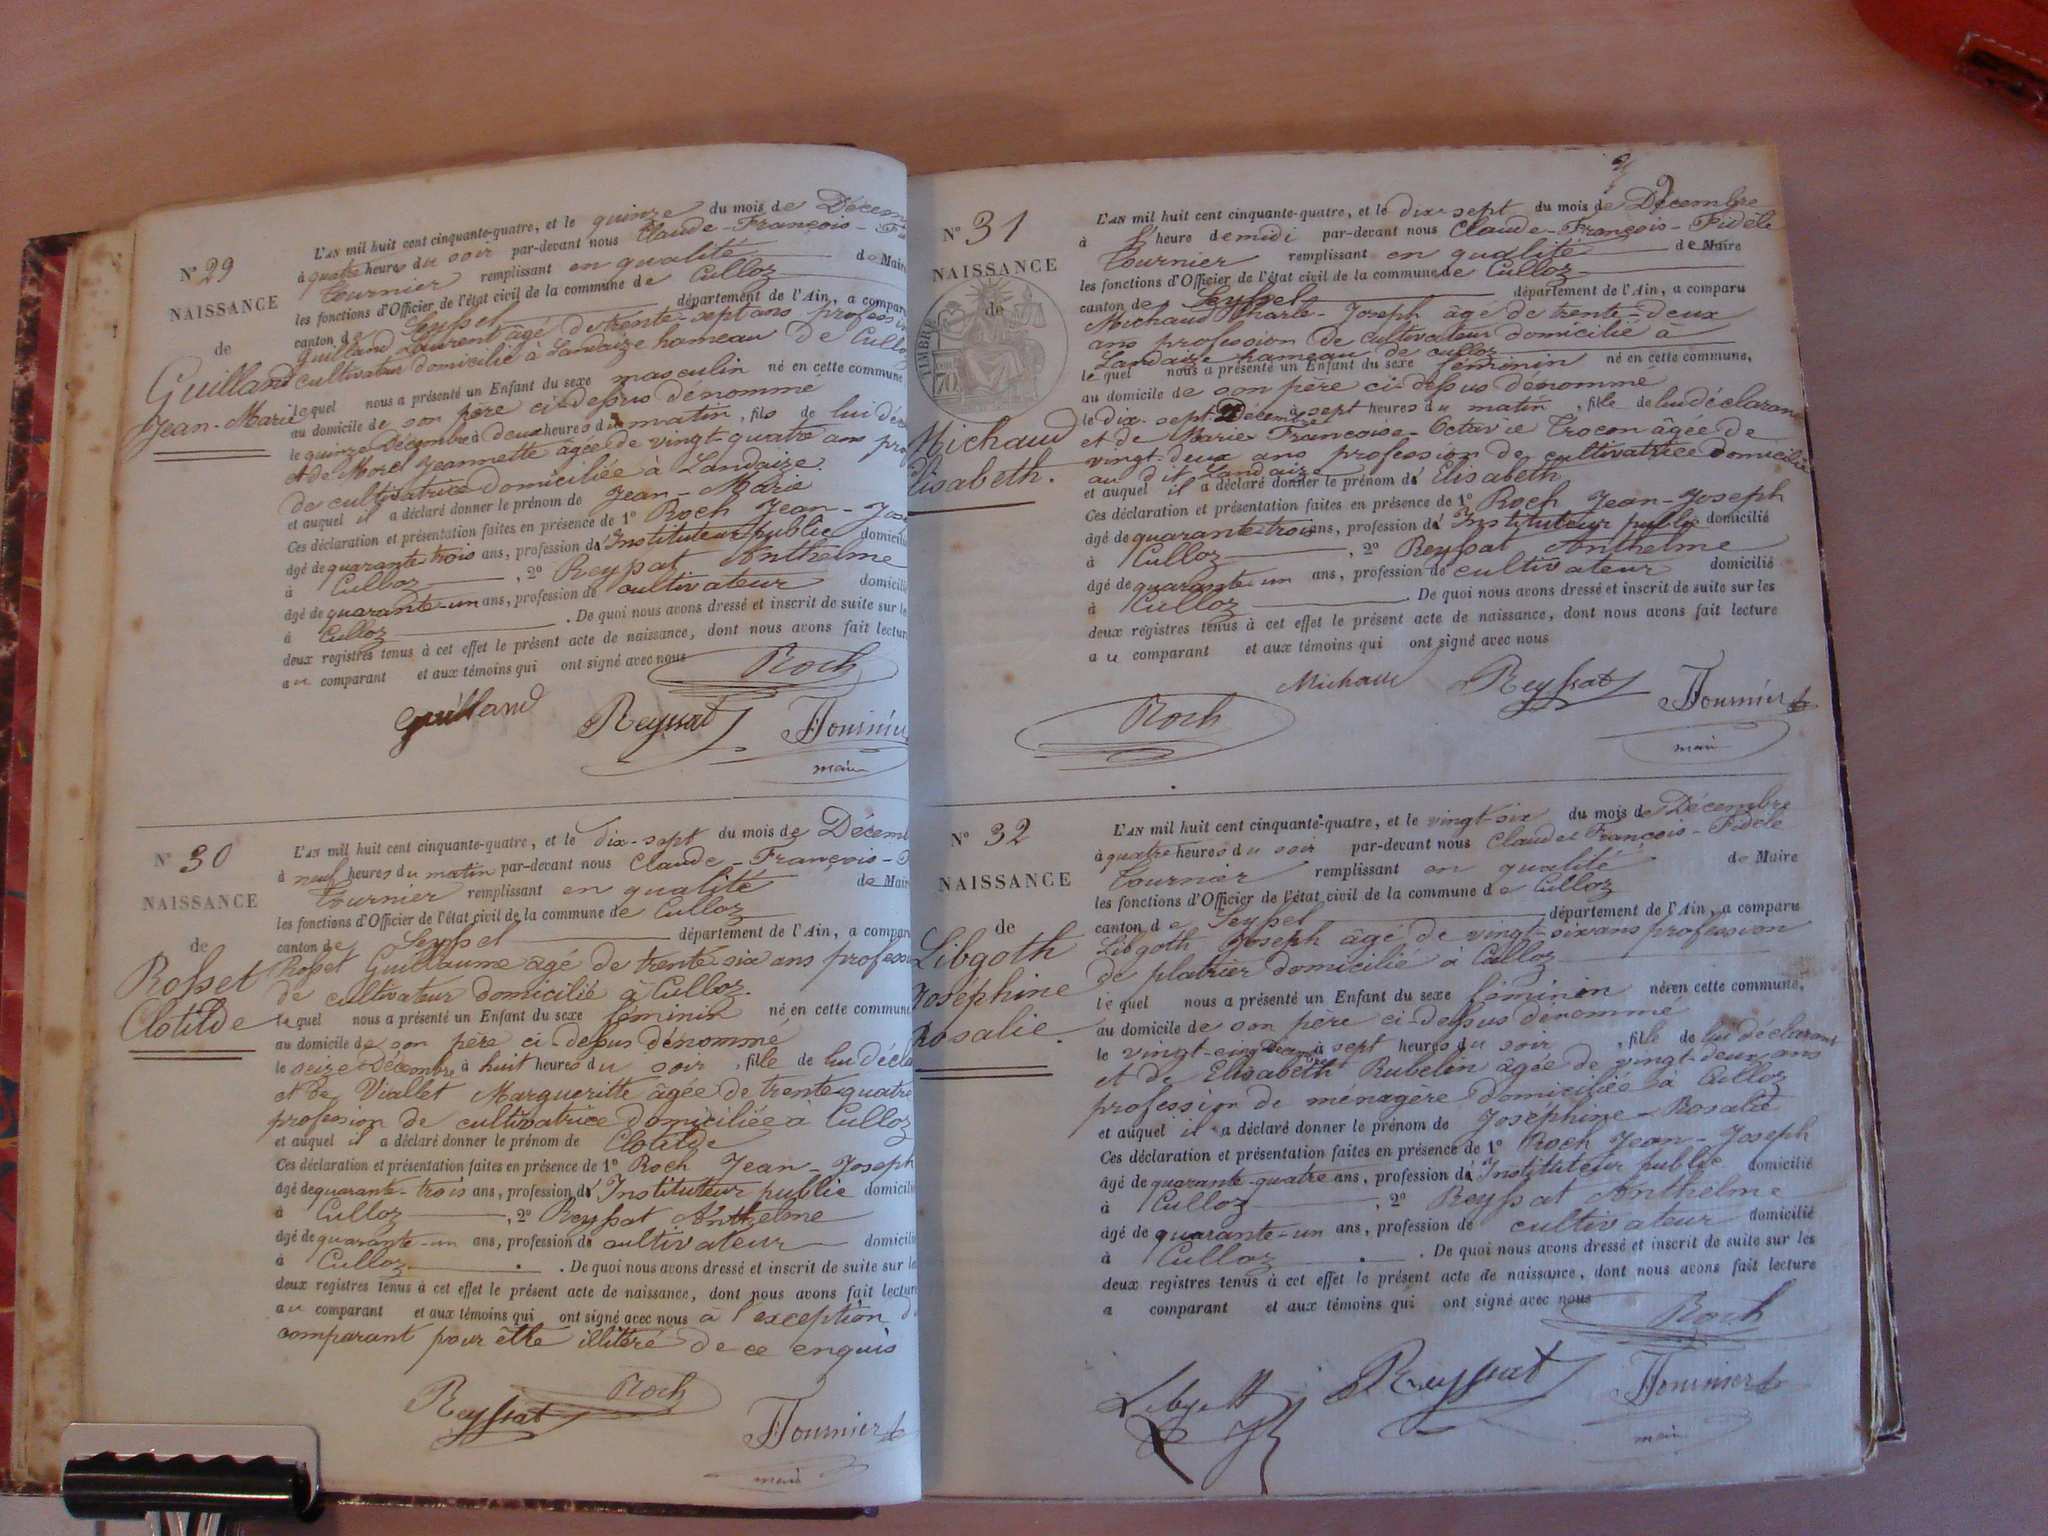 N° 29
NAISSANCE
de
Guilland
Jean-Marie
L'AN mil huit cent cinquante-quatre, et le quinze du mois de Décem
à quatre heures du soir par-devant nous Claude-François-
Tournier remplissant en qualité de Maire
les fonctions d'Officier de l'état civil de la commune de Culloz
canton de Seyssel département de l'Ain, a comparu
Guilland Laurent âgé de trente-sept ans profess
cultivateur domicilié à Landaize hameau de Culloz
lequel nous a présenté un Enfant du sexe masculin né en cette commune
au domicile de son père ci-dessus dénommé
le quinze Décembre à deux heures du matin, fils de lui décl
et de Morel Jeannette âgée de vingt-quatre ans prof
de cultivatrice domiciliée à Landaize.
et auquel il a déclaré donner le prénom de Jean-Marie
Ces déclaration et présentation faites en présence de 1° Roch Jean-Jose
âgé de quarante trois ans, profession d'Instituteur public domicilié
à Culloz, 2° Reyssat Anthelme
âgé de quarante-un ans, profession de cultivateur domicilié
à Culloz. De quoi nous avons dressé et inscrit de suite sur les
deux registres tenus à cet effet le présent acte de naissance, dont nous avons fait lecture
au comparant et aux témoins qui ont signé avec nous
Roch
Guilland
Reyssat
Tournier
maire
N° 30
NAISSANCE
de
Rosset
Clotilde
L'AN mil huit cent cinquante-quatre, et le dix-sept du mois de Décem
à neuf heures du matin par-devant nous Claude-François-
Tournier remplissant en qualité de Maire
les fonctions d'Officier de l'état civil de la commune de Culloz
canton de Seyssel département de l'Ain, a comparu
Rosset Guillaume âgé de trente-six ans profess
de cultivateur domicilié à Culloz.
lequel nous a présenté un Enfant du sexe féminin né en cette commune
au domicile de son père ci dessus dénommé
le seize Décembre à huit heures du soir, fille de lui décla
et de Viallet Margueritte âgée de trente-quatre
profession de cultivatrice domiciliée à Culloz
et auquel il a déclaré donner le prénom de Clotilde
Ces déclaration et présentation faites en présence de 1° Roch Jean-Joseph
âgé de quarante-trois ans, profession d'Instituteur public domicilié
à Culloz, 2° Reyssat Anthelme
âgé de quarante-un ans, profession de cultivateur domicilié
à Culloz. De quoi nous avons dressé et inscrit de suite sur les
deux registres tenus à cet effet le présent acte de naissance, dont nous avons fait lecture
au comparant et aux témoins qui ont signé avec nous à l'exception du
comparant pour être illitéré de ce enquis
Roch
Reyssat
Tournier
maire
N° 31
NAISSANCE
de
TIMBRE
70
Michaud
Elisabeth.
L'AN mil huit cent cinquante-quatre, et le dix-sept du mois de Décembre
à l'heure de midi par-devant nous Claude-François-Fidèle
Tournier remplissant en qualité de Maire
les fonctions d'Officier de l'état civil de la commune de Culloz
canton de Seyssel département de l'Ain, a comparu
Michaud Charle-Joseph âgé de trente-deux
ans profession de cultivateur domicilié à
Landaize hameau de culloz
le quel nous a présenté un Enfant du sexe féminin né en cette commune,
au domicile de son père ci-dessus dénommé
le dix-sept Décembre à sept heures du matin, fille de lui déclarant
et de Marie Françoise-Octavie Trocon âgée de
vingt-deux ans profession de cultivatrice domicilié
au dit Landaize
et auquel il a déclaré donner le prénom d'Elisabeth
Ces déclaration et présentation faites en présence de 1° Roch Jean-Joseph
âgé de quarante-trois ans, profession d'Instituteur public domicilié
à Culloz, 2° Reyssat Anthelme
âgé de quarante-un ans, profession de cultivateur domicilié
à Culloz. De quoi nous avons dressé et inscrit de suite sur les
deux registres tenus à cet effet le présent acte de naissance, dont nous avons fait lecture
au comparant et aux témoins qui ont signé avec nous
Michaud Reyssat Tournier
Roch
maire
N° 32
NAISSANCE
de
Libgoth
Joséphine
Rosalie.
L'AN mil huit cent cinquante-quatre, et le vingt-six du mois de Décembre
à quatre heures du soir par-devant nous Claude François-Fidèle
Tournier remplissant en qualité de Maire
les fonctions d'Officier de l'état civil de la commune de Culloz
canton de Seyssel département de l'Ain, a comparu
Libgoth Joseph âgé de vingt-six ans profession
de platrier domicilié à Culloz
le quel nous a présenté un Enfant du sexe féminin né en cette commune,
au domicile de son père ci-dessus dénommé
le vingt-cinq Décembre à sept heures du soir, fille de lui déclarant
et de Elisabeth Rubelin âgée de vingt-deux ans
profession de ménagère domiciliée à Culloz
et auquel il a déclaré donner le prénom de Joséphine-Rosalie
Ces déclaration et présentation faites en présence de 1° Roch Jean-Joseph
âgé de quarante-quatre ans, profession d'Instituteur public domicilié
à Culloz, 2° Reyssat Anthelme
âgé de quarante-un ans, profession de cultivateur domicilié
à Culloz. De quoi nous avons dressé et inscrit de suite sur les
deux registres tenus à cet effet le présent acte de naissance, dont nous avons fait lecture
a comparant et aux témoins qui ont signé avec nous
Roch
Reyssat
Tournier
maire